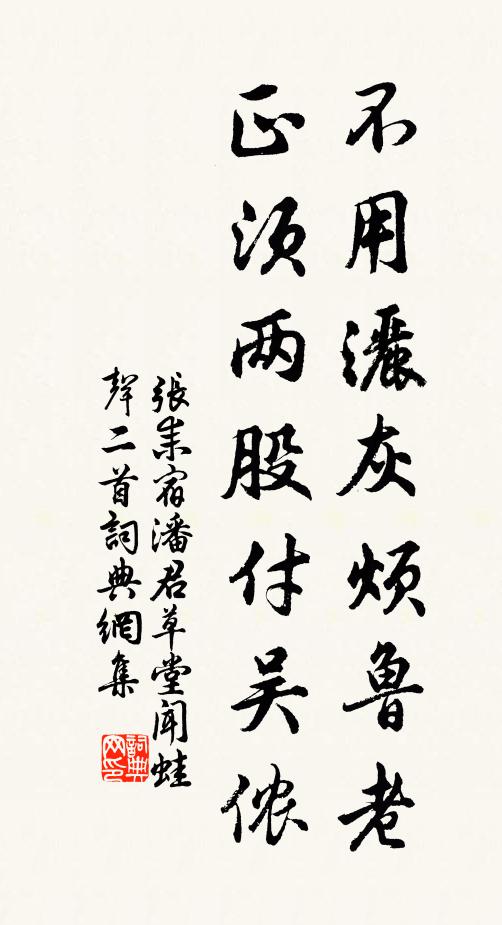 不用灑灰烦鲁老
正须两股付吴侬
張耒宿潘君草堂聞蛙
聲二首詞典網集
詞典
网印